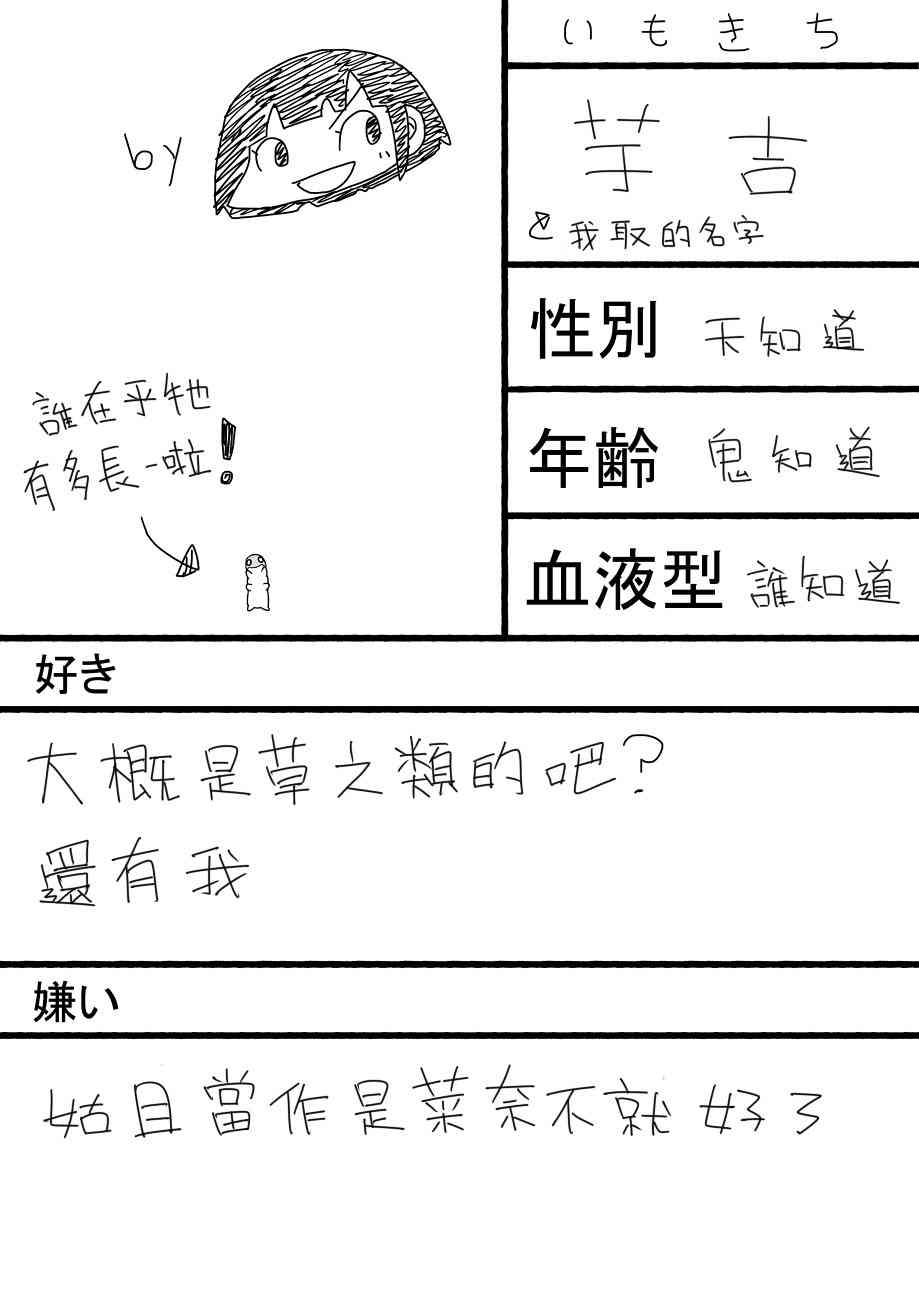 by
いもきち
芋吉
我取的名字
性別 天知道
年齢 鬼知道
血液型 誰知道
誰在乎牠
有多長一啦!
好き
大概是草之類的吧?
還有我
嫌い
姑且當作是菜奈不就好了